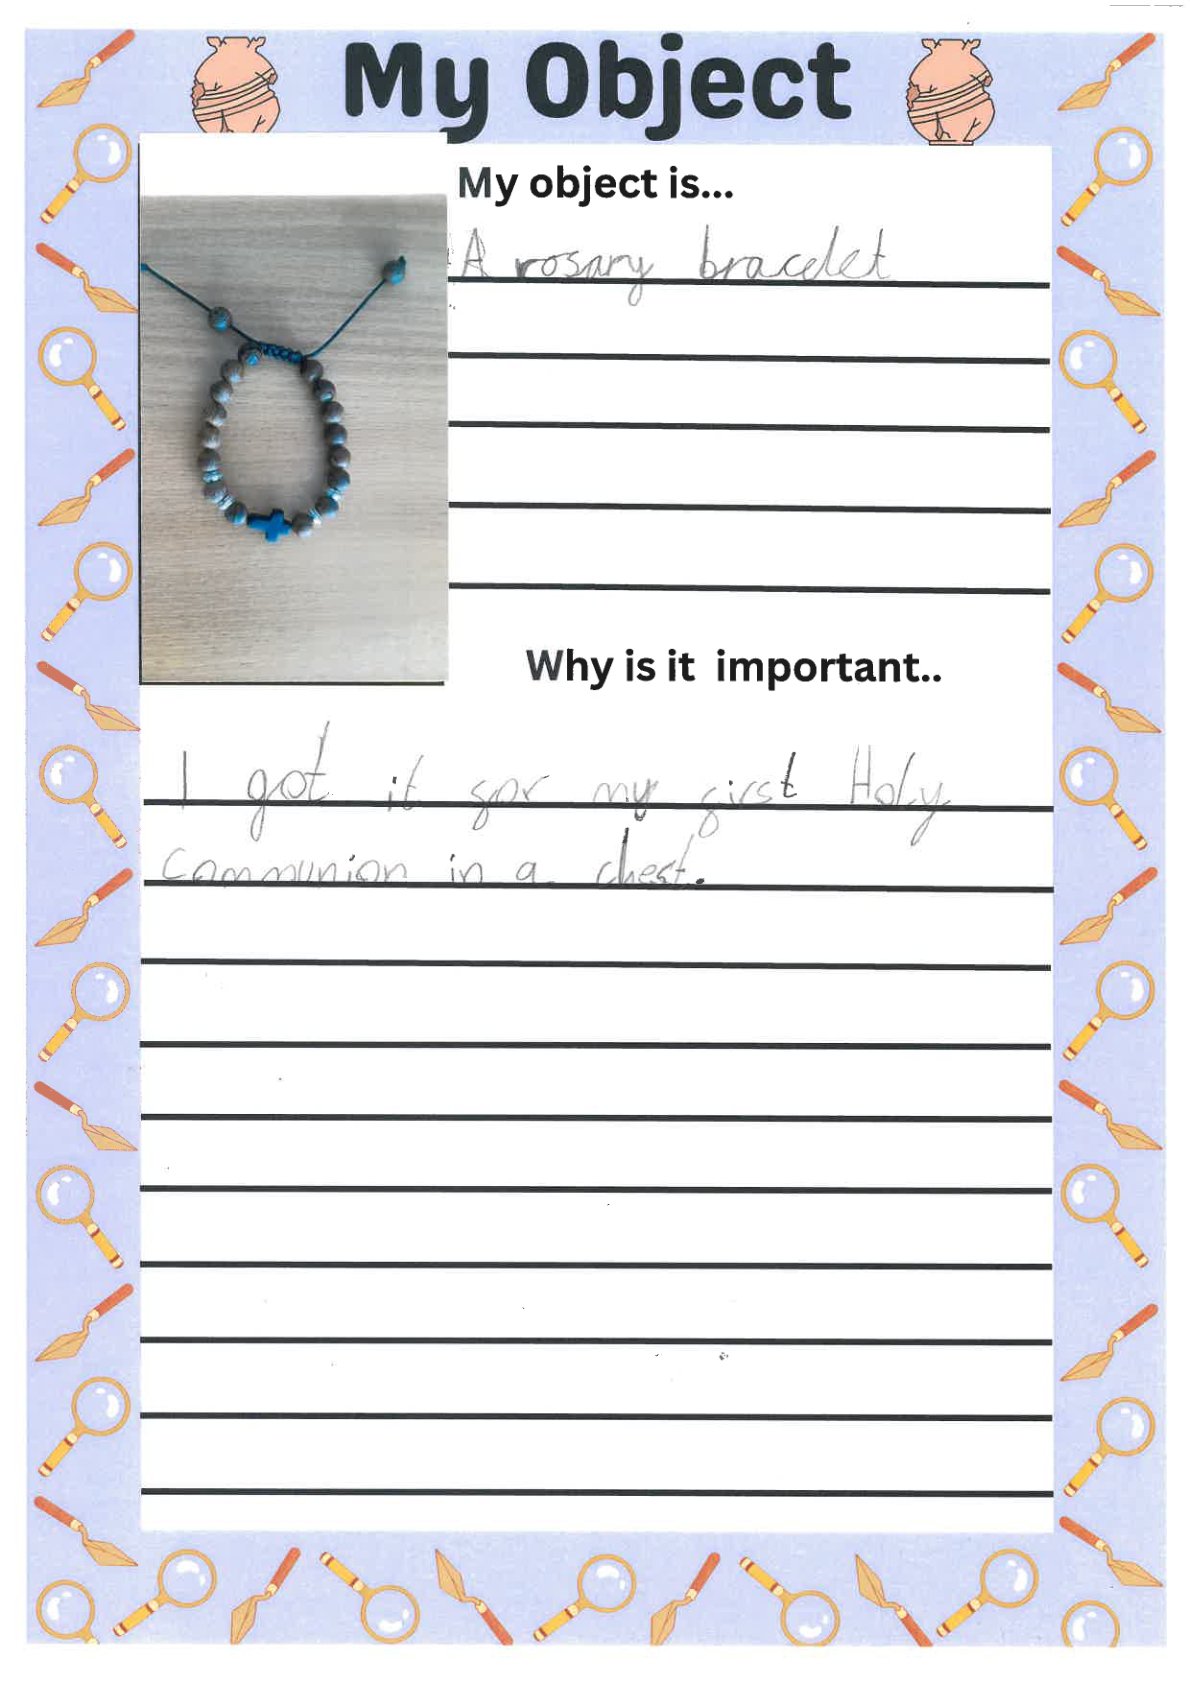 My Object
My object is...
A rosary bracelet
Why is it important..
I got it for my first Holy
Communion in a chest.